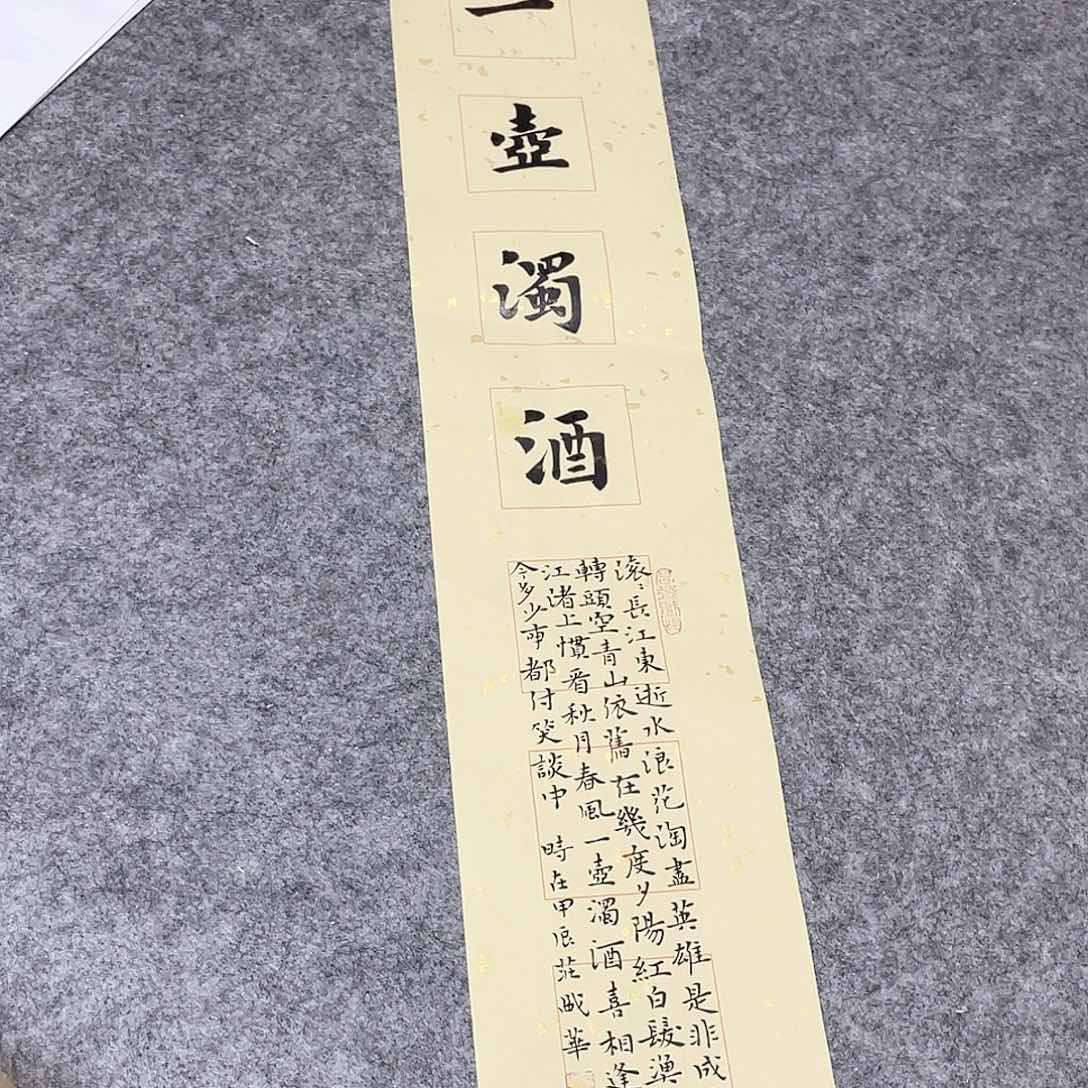 一壺濁酒
滚〻長江東逝水浪花淘盡英雄是非成
轉頭空青山依舊在幾度夕陽紅白髮漁
江渚上慣看秋月春風一壺濁酒喜相逢
今多少事都付笑談中 時在甲辰 華